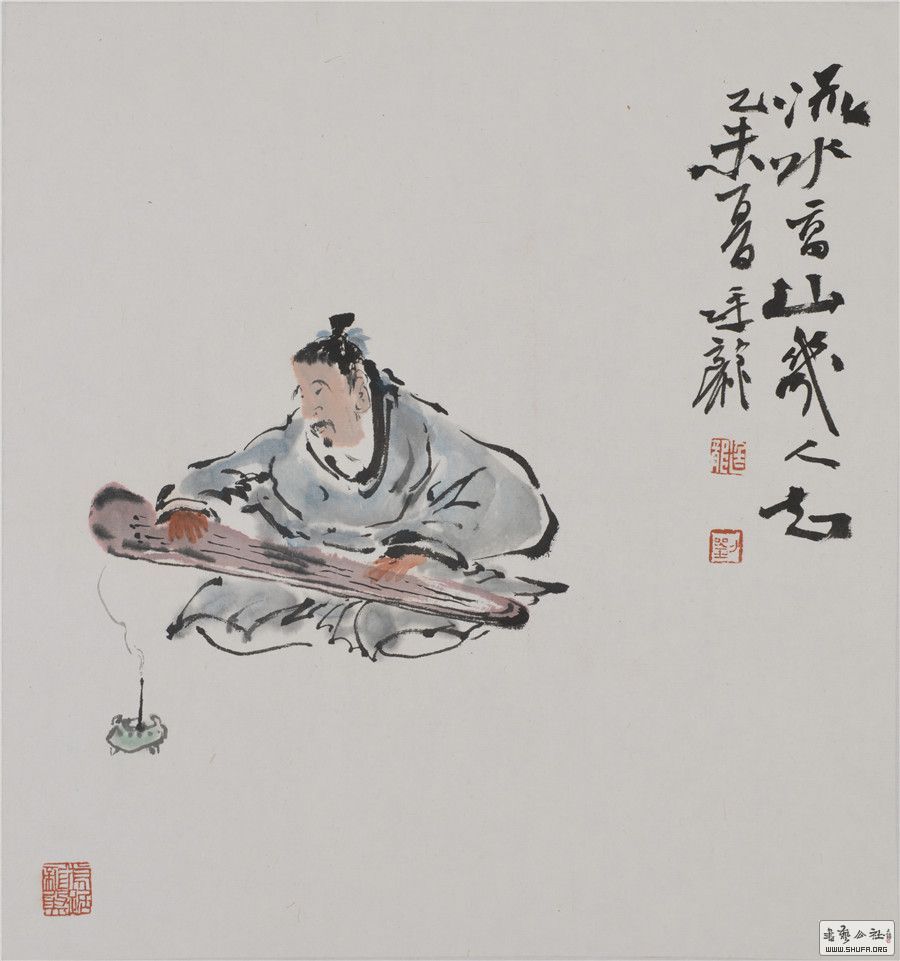 流水高山幾人知
乙未夏
書藝公社
WWW.SHUFA.ORG